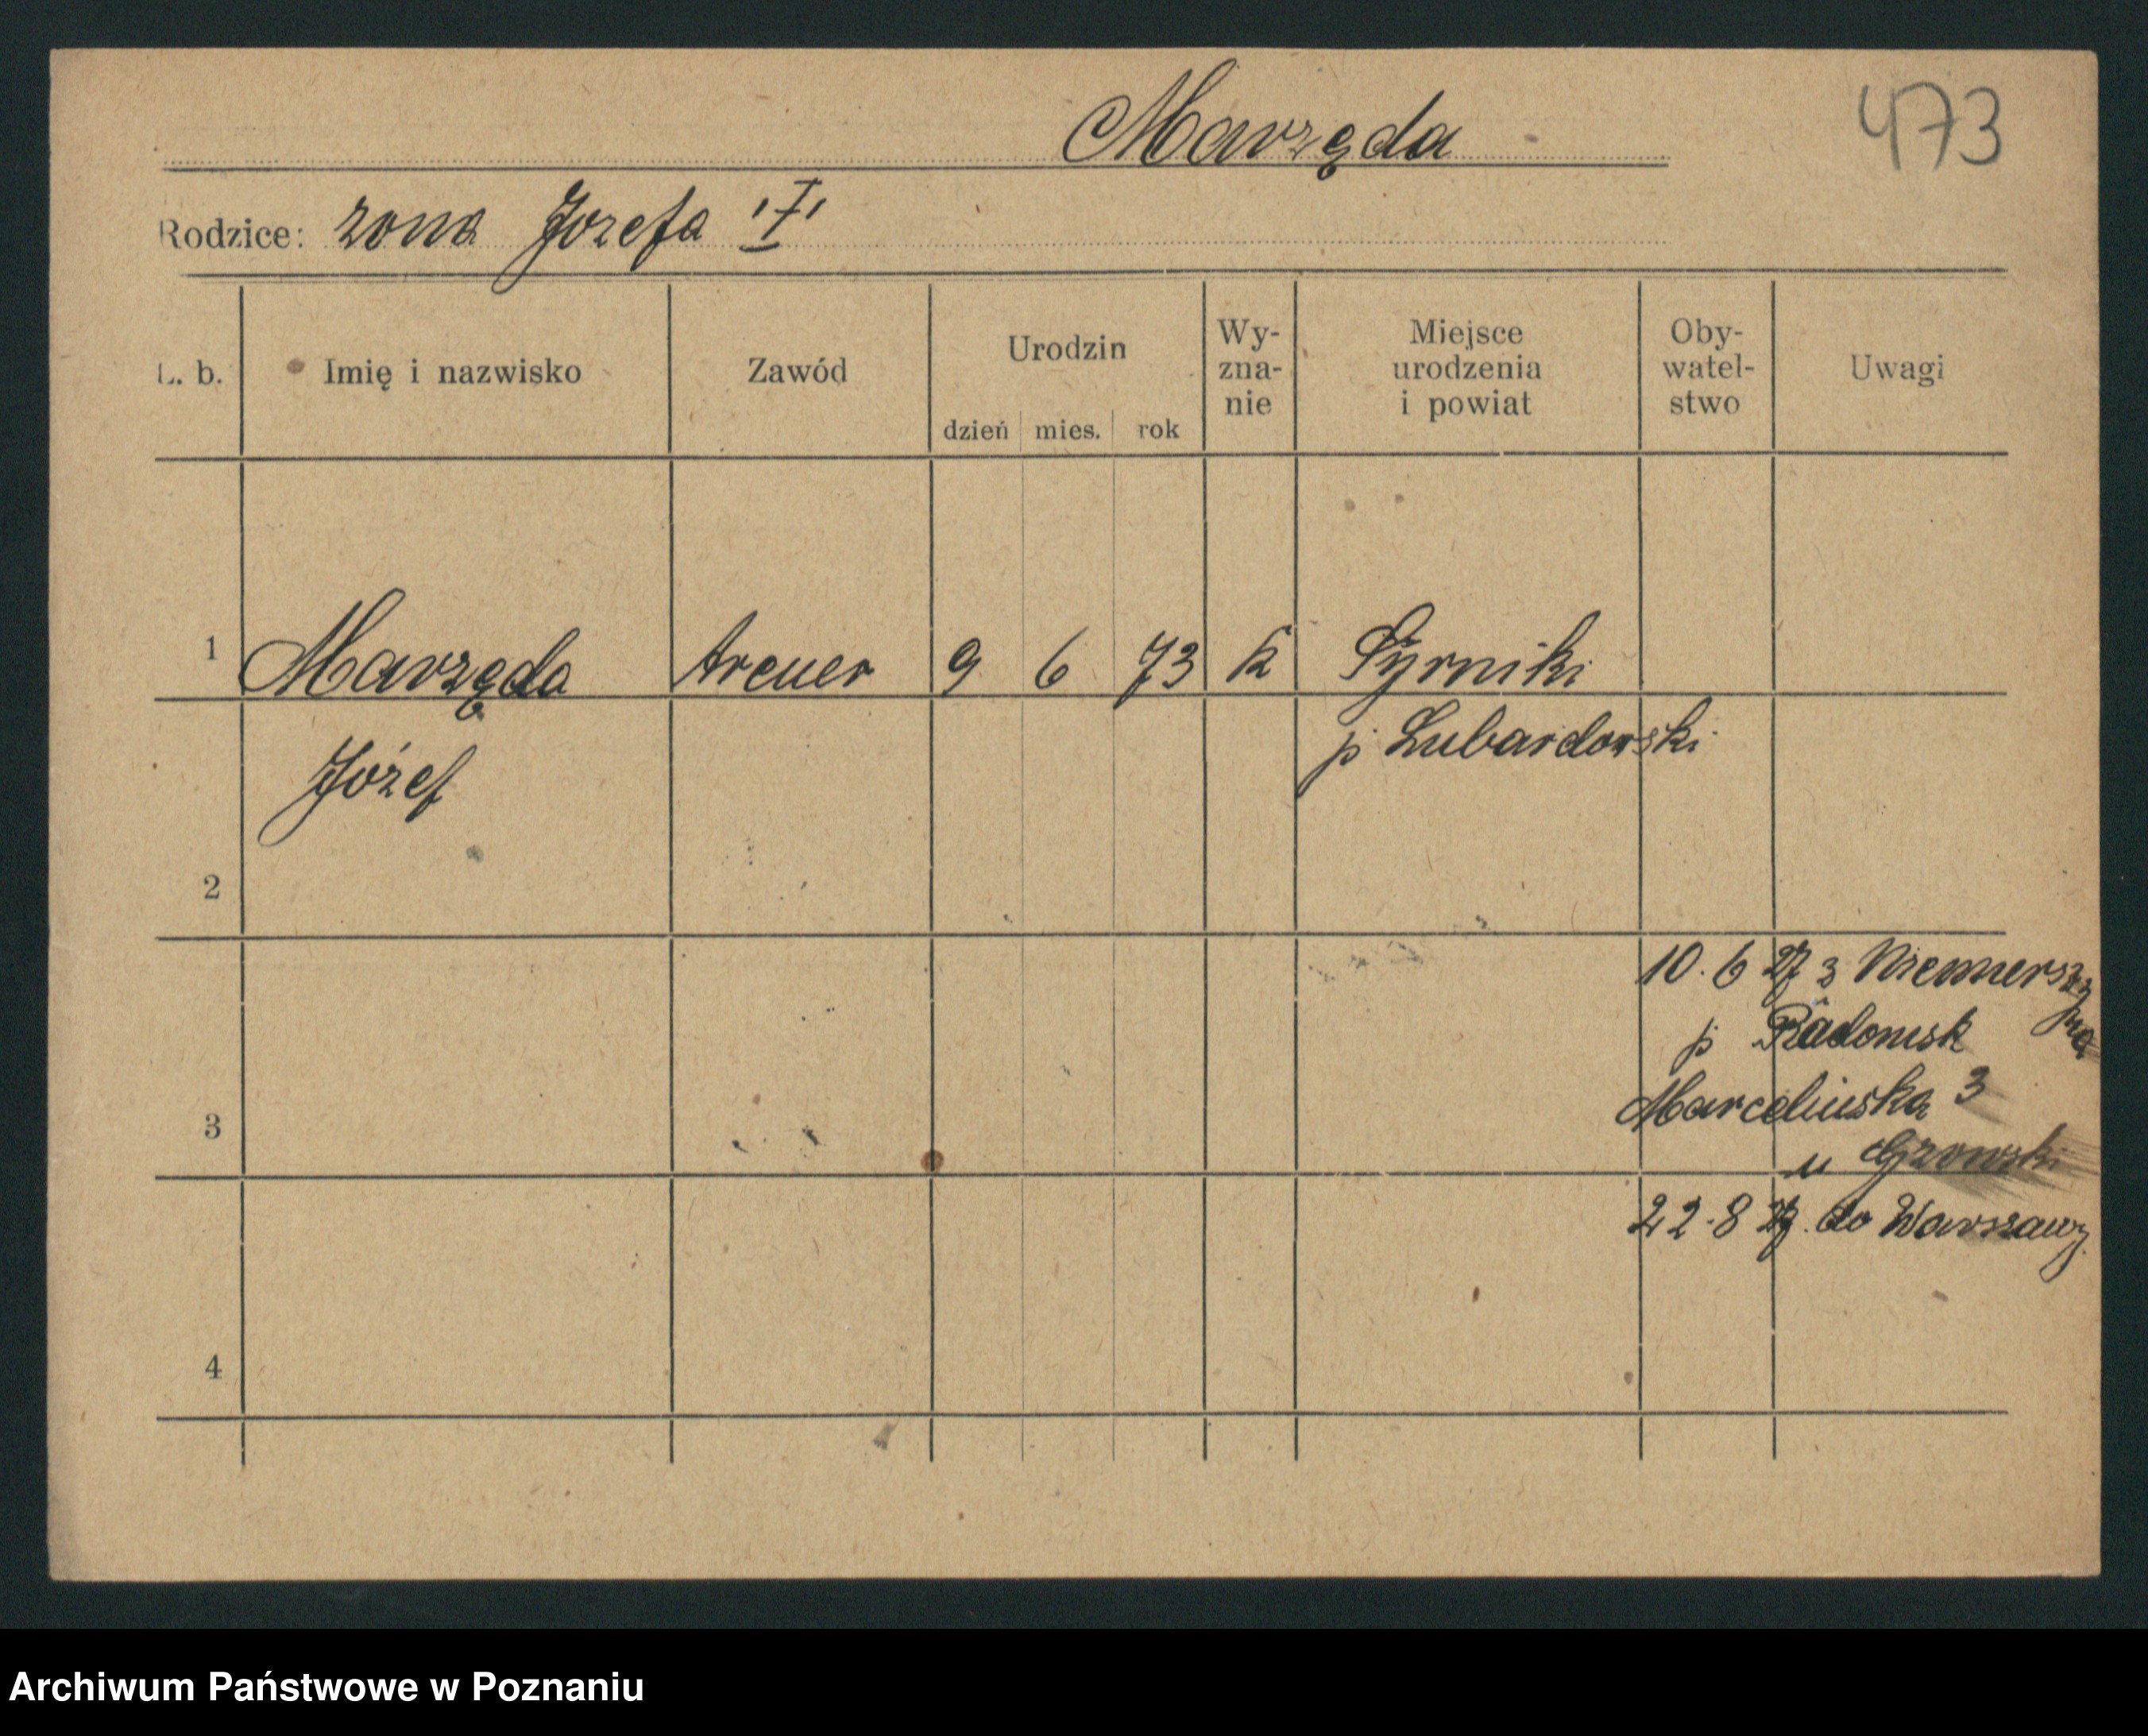 Marzęda
473
Rodzice: zona Jozefa "I"
L. b. Imię i nazwisko Zawód Urodzin dzień mies. rok Wy-zna-nie Miejsce urodzenia i powiat Oby-watel-stwo Uwagi
1 Marzęda trener 9 6 73 k Syrniki
Józef p Lubardowski
2
10. 6 27 z
p Radomsk
Marcelińska 3
3 u
22. 8 27. do Warszawy
4
Archiwum Państwowe w Poznaniu